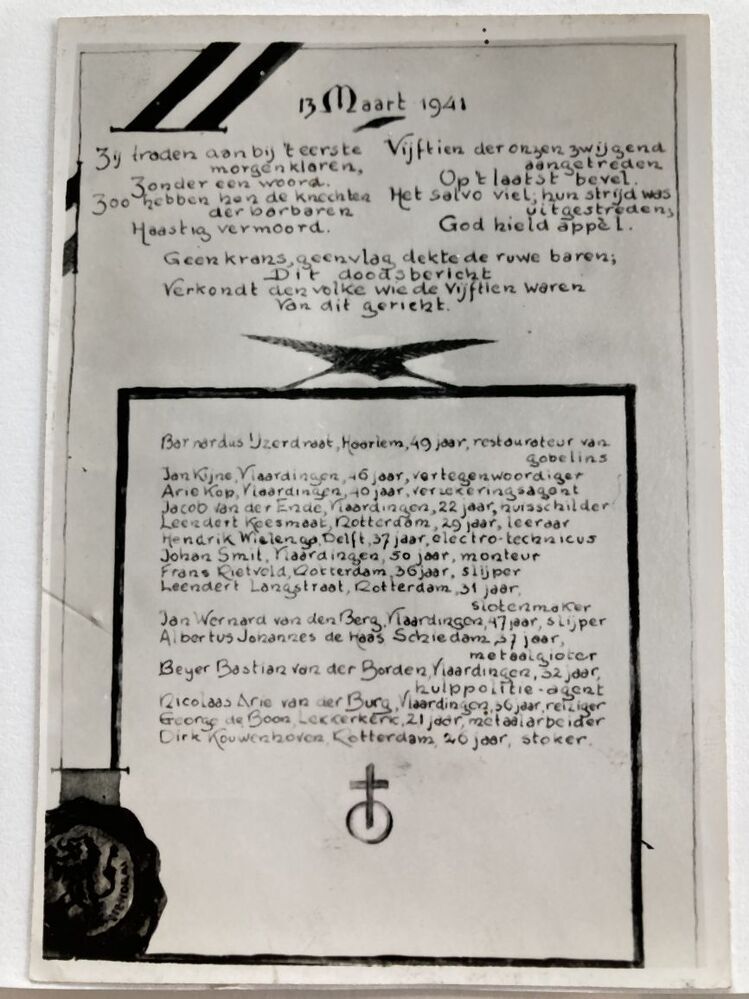 13 Maart 1941
Zij traden aan bij 't eerste
morgenklaren,
Zonder een woord.
Zoo hebben hen de knechten
der barbaren
Haastig vermoord.
Vijftien der onzen zwijgend
aangetreden
Op 't laatst bevel.
Het salvo viel; hun strijd was
uitgestreden;
God hield appèl.
Geen krans, geen vlag dekte de ruwe baren;
Dit doodsbericht
Verkondt den volke wie de Vijftien waren
Van dit gericht.
Barnardus IJzerdraat, Haarlem, 49 jaar, restaurateur van
gobelins
Jan Kijne, Vlaardingen, 46 jaar, vertegenwoordiger
Arie Kop, Vlaardingen, 40 jaar, verzekeringsagent
Jacob van der Ende, Vlaardingen, 22 jaar, huisschilder
Leendert Keesmaat, Rotterdam, 29 jaar, leeraar
Hendrik Wielenga, Delft, 37 jaar, electro-technicus
Johan Smit, Vlaardingen, 50 jaar, monteur
Frans Rietveld, Rotterdam, 36 jaar, slijper
Leendert Langstraat, Rotterdam, 31 jaar,
slotenmaker
Jan Wernard van den Berg, Vlaardingen, 47 jaar, slijper
Albertus Johannes de Haas Schiedam, 37 jaar,
metaalgieter
Beyer Bastian van der Borden, Vlaardingen, 32 jaar,
hulppolitie-agent
Nicolaas Arie van der Burg, Vlaardingen, 36 jaar, reiziger
George de Boon, Lekkerkerk, 21 jaar, metaalarbeider
Dirk Kouwenhoven, Rotterdam, 26 jaar, stoker.